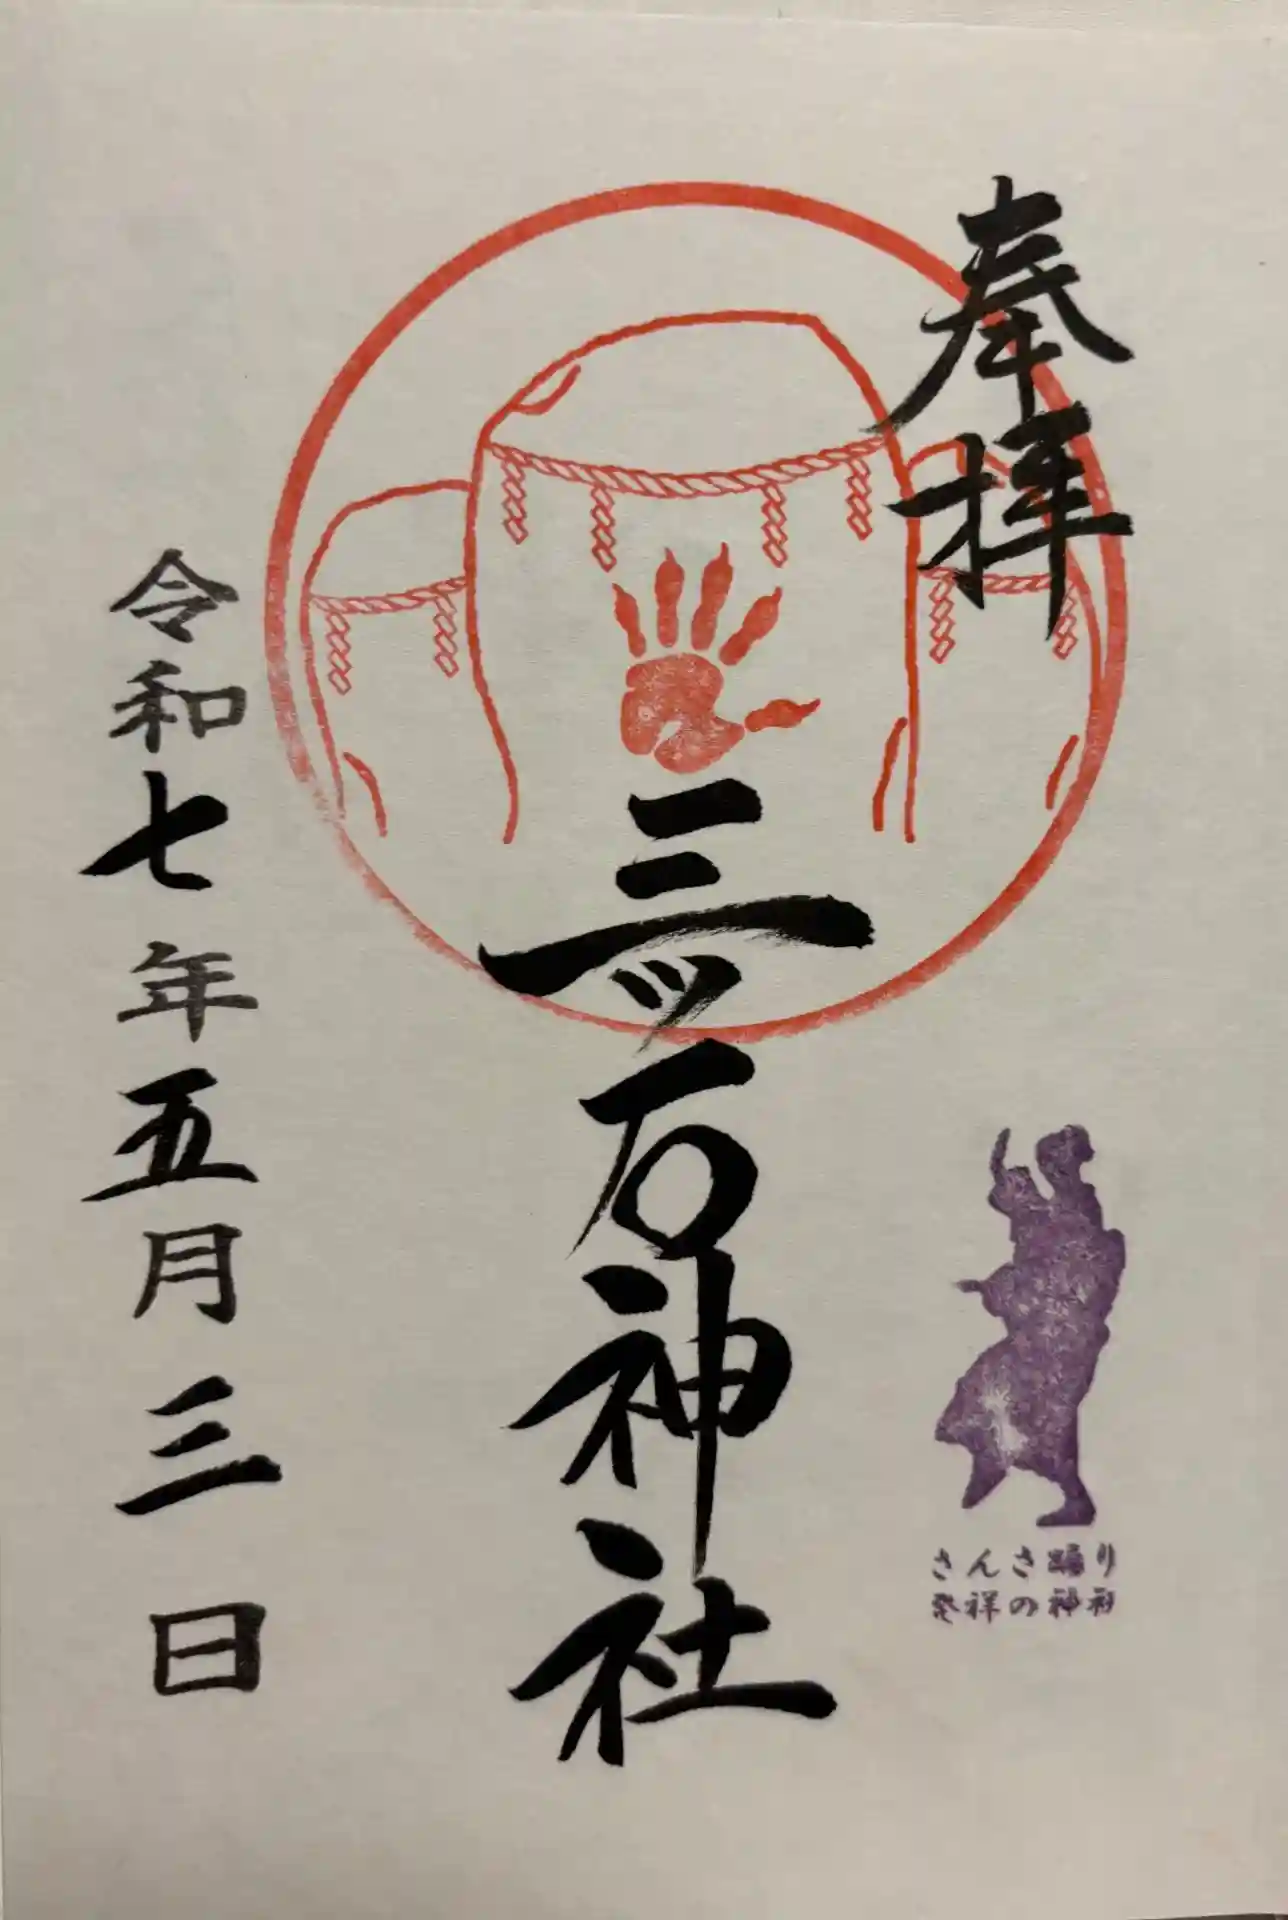 奉拝
さんさ踊り
発祥の神社
三ッ石神社
令和七年五月三日